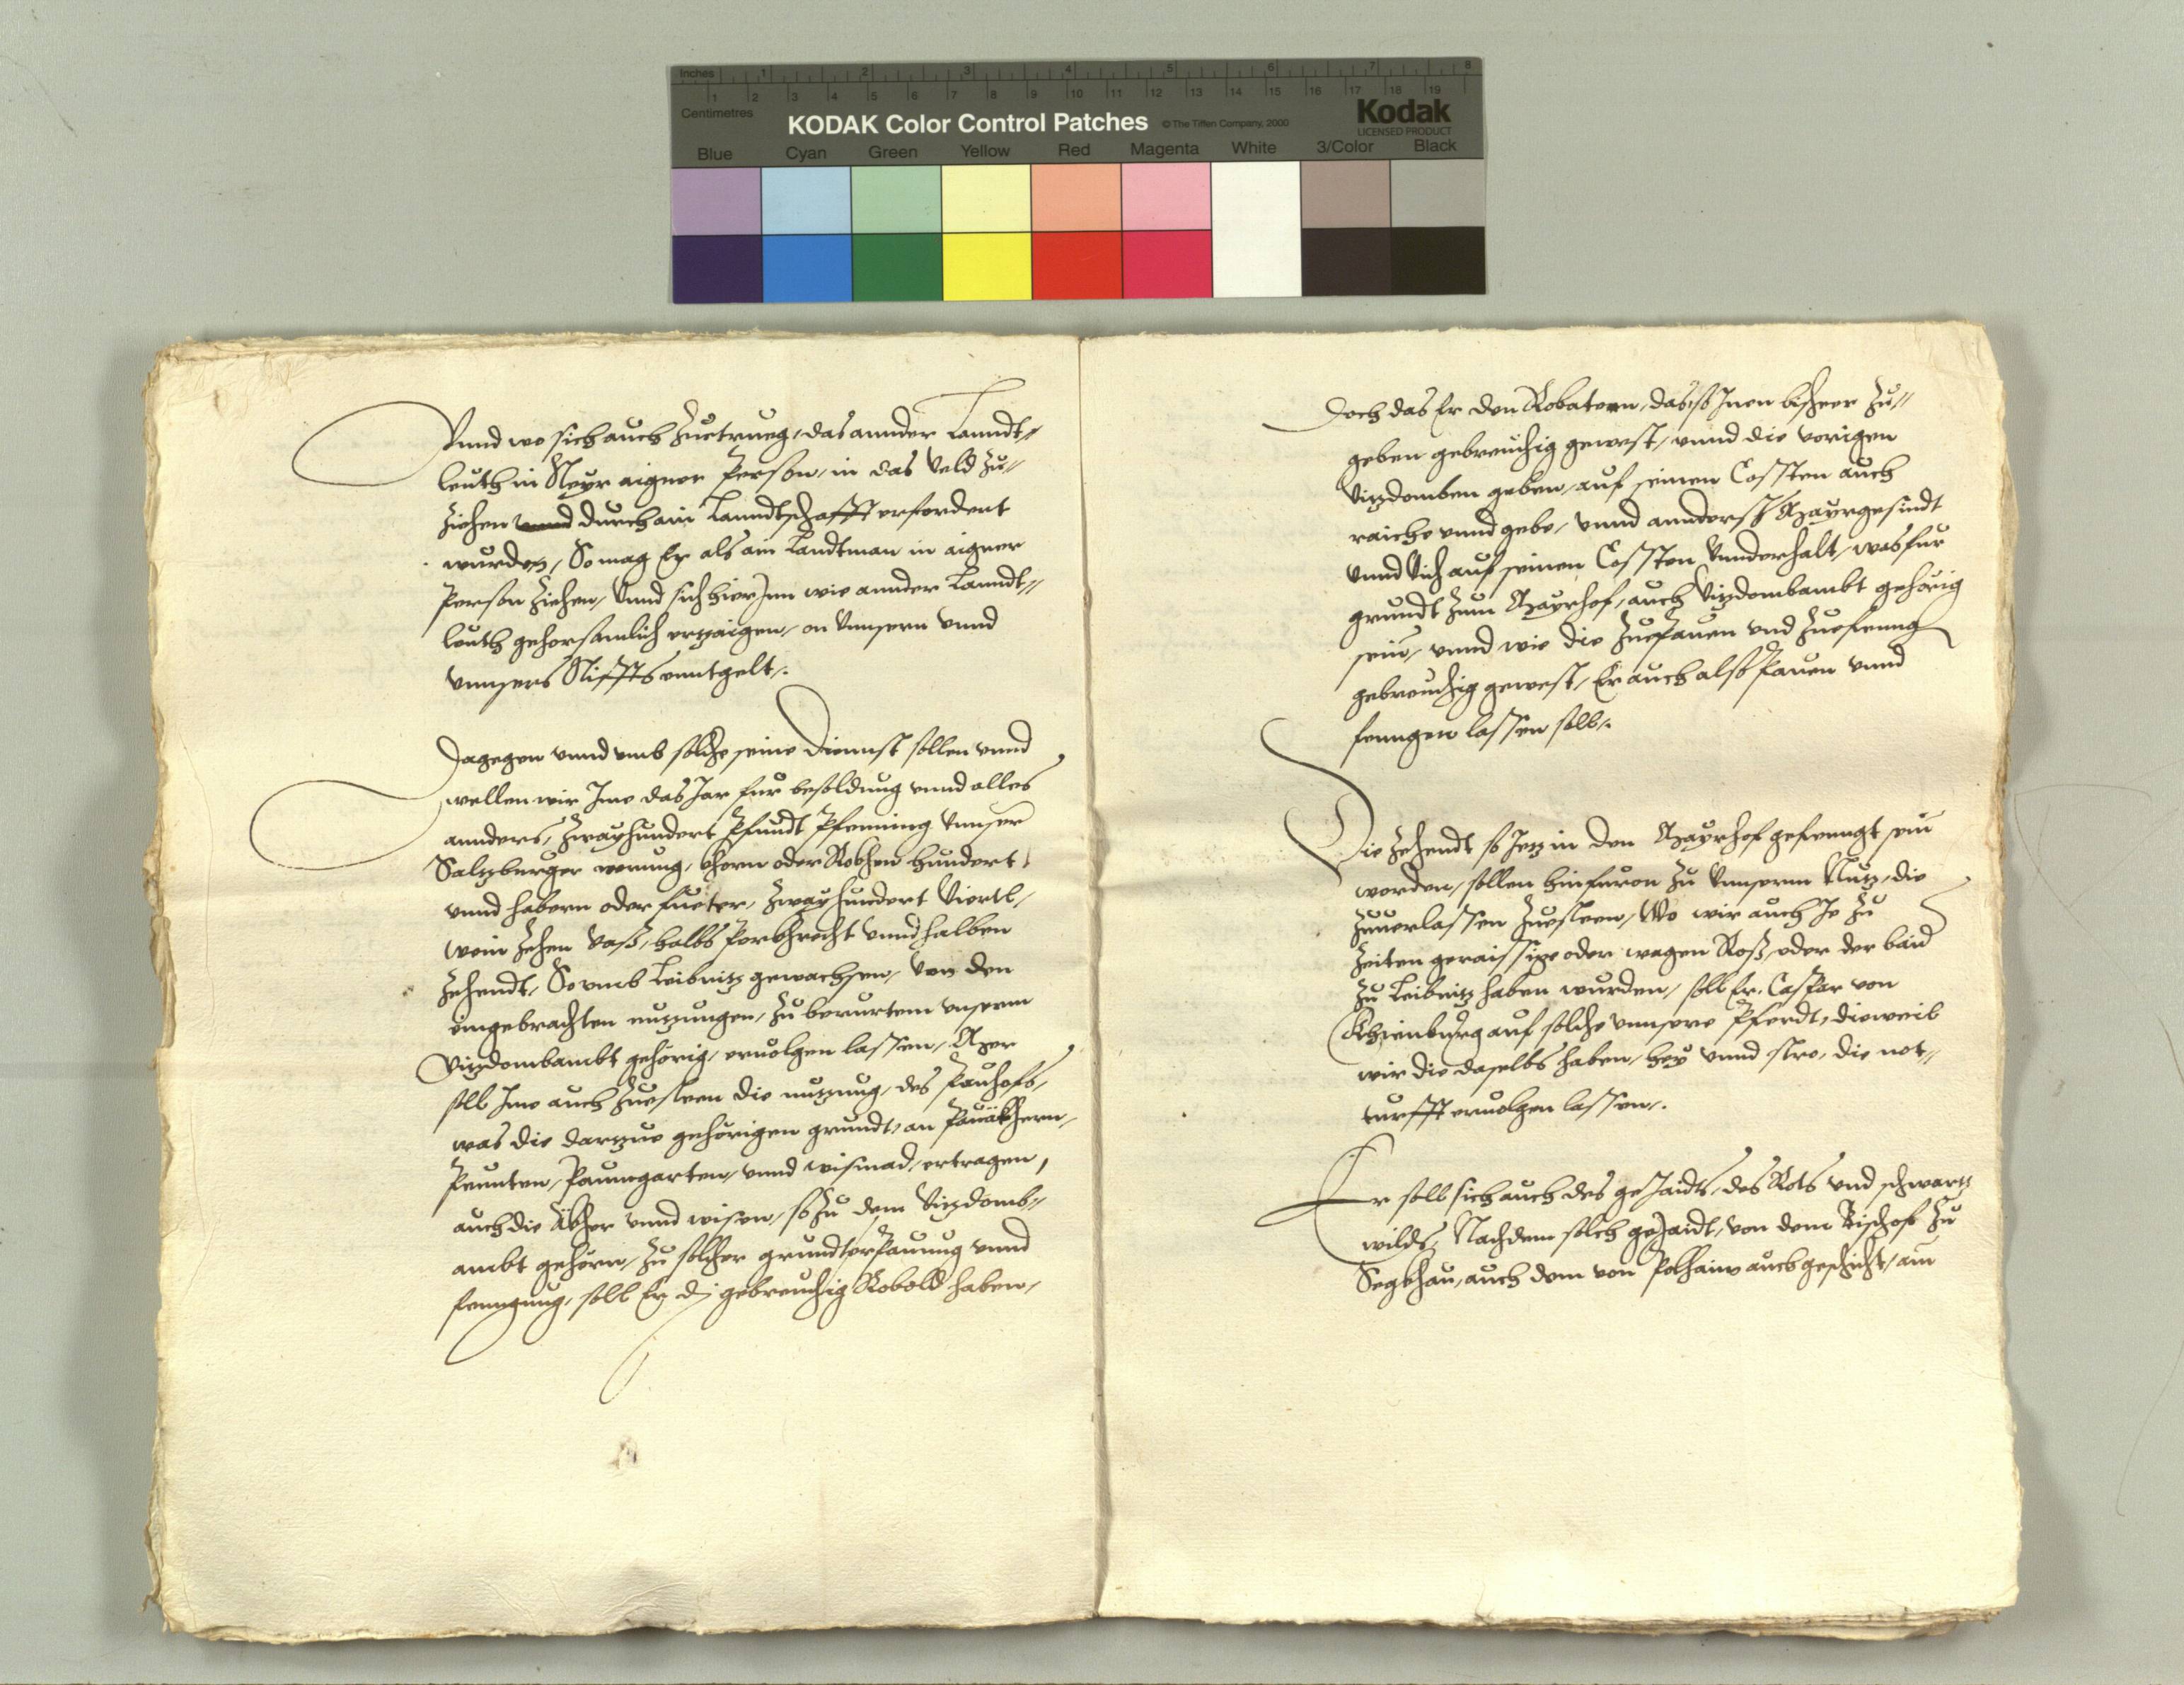 Inches 1 2 3 4 5 6 7 8
1 2 3 4 5 6 7 8 9 10 11 12 13 14 15 16 17 18 19
Centimetres
KODAK Color Control Patches © The Tiffen Company, 2000 Kodak
LICENSED PRODUCT
Blue Cyan Green Yellow Red Magenta White 3/Color Black
Vnnd wo sich auch zuetrueg, das annder Lanndt//
leuth in Steyr aigner Person, in das Veld zu//
ziehen durch ain Lanndtschafft erfordert
wurden, So mag Er als ain Landtman in aigner
Person ziehen, Vnnd sich hierJnn wie annder Lanndt//
leuth gehorsamlich ertzaigen, on Vnnsern vnnd
vnnsers Stiffts enntgelt.
Dagegen vnnd vmb solche seine Diennst sollen vnnd
wellen wir Jme das Jar fur besoldung vnnd alles
annders, Zwayhundert Pfundt Pfenning Vnnser
Saltzburger werung, Khorn oder Rokhen hundert,
vnnd habern oder fueter, Zwayhundert Viertl,
wein Zehen Vaß, halbs Perkhrecht vnnd halben
Zehendt, So vmb Leibnitz gewachsen, Von den
eingebrachten nutzungen, zu berurtem vnserm
Vitzdombambt gehörig, eruolgen lassen, Mer
soll Jme auch zuesteen die nutzung, des Pauhofs,
was die dartzue gehörigen grundt, an Pauäkhern,
Peunten, Paumgarten, vnnd wismad, ertragen,
auch die Äkher vnnd wisen, so zu dem Vitzdomb//
ambt gehörn, Zu solcher grundt erpauung vnnd
fenngung, soll Er di gebreuchig Robold haben,
Doch das Er den Robatern, das so Jnen bißheer zu//
geben gebreuchig gewest, vnnd die vorigen
Vitzdomben geben, auf seinen Cossten auch
raiche vnnd gebe, vnnd annderß Mayrgesindt
vnnd Vich auf seinen Cossten Vnnderhalt, was fur
grundt zum Mayrhof, auch Vitzdombambt gehörig
sein, vnnd wie die zuepauen vnd zuefenng
gebreuchig gewest, Er auch also Pauen vnnd
fenngen lassen soll.
Die Zehendt so Jetz in den Mayrhof gefenngt sein
worden, sollen hinfuron zu Vnnserm Nutz, die
zuuerlassen zuesteen, Wo wir auch Je zu
Zeiten geraissige oder wagen Roß, oder der baid
zu Leibnitz haben wurden, soll Er, Caspar von
Khienburg auf solche vnnsere Pferdt, dieweil
wir die daselbs haben, hey vnnd stro, die not//
turfft eruolgen lassen.
Er soll sich auch des geJaidts, des Rots vnd schwartz
wilds, Nachdem solch geJaidt, von dem Bischof zu
Segkhau, auch dem von Polhaim auch geschicht, ain